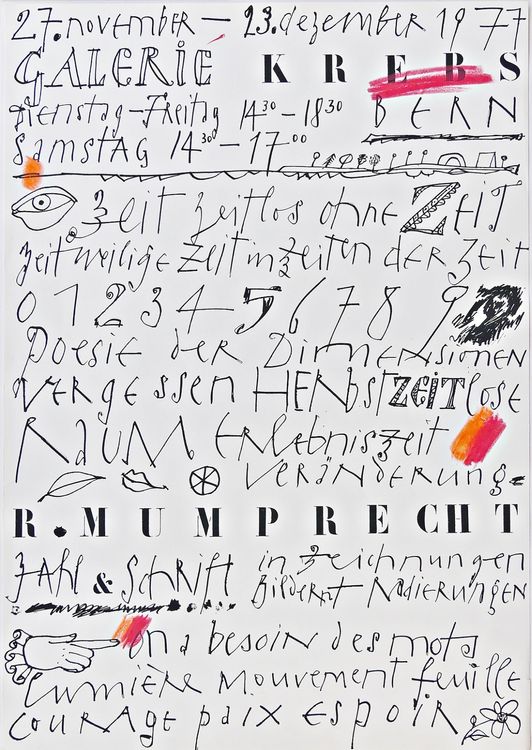 27. november – 23. dezember 1977
GALERIE KREBS
Dienstag – Freitag 14³⁰ – 18³⁰ BERN
SamstAG 14³⁰ – 17⁰⁰
Zeit zeitlos ohne ZEIT
zeitweilige Zeit in Zeiten der Zeit
0 1 2 3 4 5 6 7 8 9
Poesie der Dimensionen
vergessen HERbst ZEITlose
RAUM ERlebniszeit
VERÄNDERUNG
R. MUMPRECHT
ZAHl & SchRift in Zeichnungen
Bildern + RAdierungen
on a besoin des mots
lumière mouvement feuille
courage paix espoir